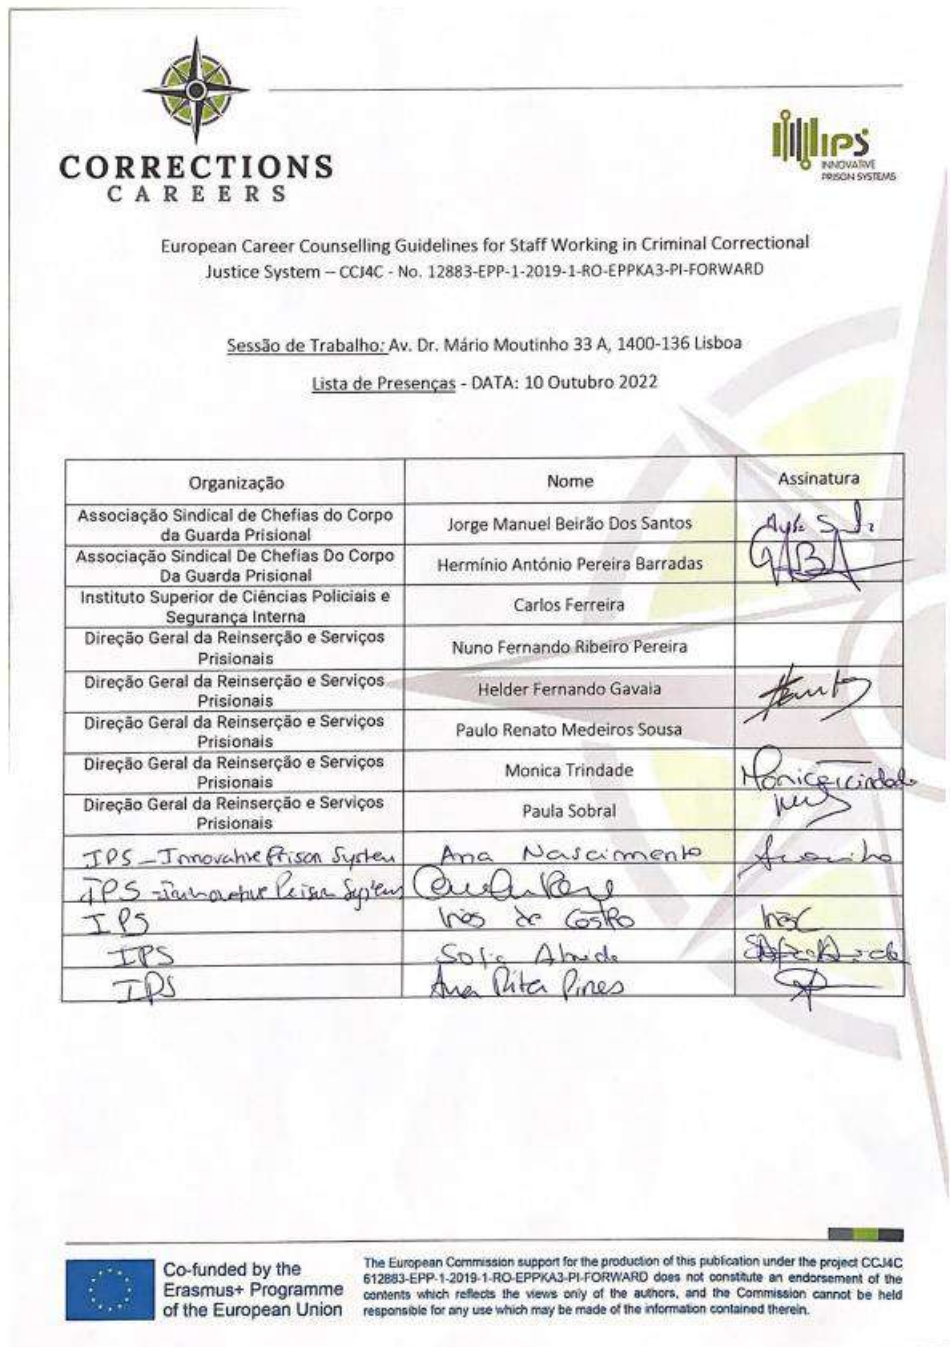 CORRECTIONS
CAREERS
IPS
INNOVATIVE
PRISON SYSTEMS
European Career Counselling Guidelines for Staff Working in Criminal Correctional
Justice System – CCJ4C - No. 12883-EPP-1-2019-1-RO-EPPKA3-PI-FORWARD
Sessão de Trabalho: Av. Dr. Mário Moutinho 33 A, 1400-136 Lisboa
Lista de Presenças - DATA: 10 Outubro 2022
Organização Nome Assinatura
Associação Sindical de Chefias do Corpo
da Guarda Prisional Jorge Manuel Beirão Dos Santos
Associação Sindical De Chefias Do Corpo
Da Guarda Prisional Hermínio António Pereira Barradas
Instituto Superior de Ciências Policiais e
Segurança Interna Carlos Ferreira
Direção Geral da Reinserção e Serviços
Prisionais Nuno Fernando Ribeiro Pereira
Direção Geral da Reinserção e Serviços
Prisionais Helder Fernando Gavaia
Direção Geral da Reinserção e Serviços
Prisionais Paulo Renato Medeiros Sousa
Direção Geral da Reinserção e Serviços
Prisionais Monica Trindade Monica Trindade
Direção Geral da Reinserção e Serviços
Prisionais Paula Sobral
IPS - Innovative Prison System Ana Nascimento
IPS - Innovative Prison Systems
IPS Inês de Castro InêsC
IPS Sofia
IPS Ana Rita Pires
Co-funded by the
Erasmus+ Programme
of the European Union
The European Commission support for the production of this publication under the project CCJ4C
612883-EPP-1-2019-1-RO-EPPKA3-PI-FORWARD does not constitute an endorsement of the
contents which reflects the views only of the authors, and the Commission cannot be held
responsible for any use which may be made of the information contained therein.